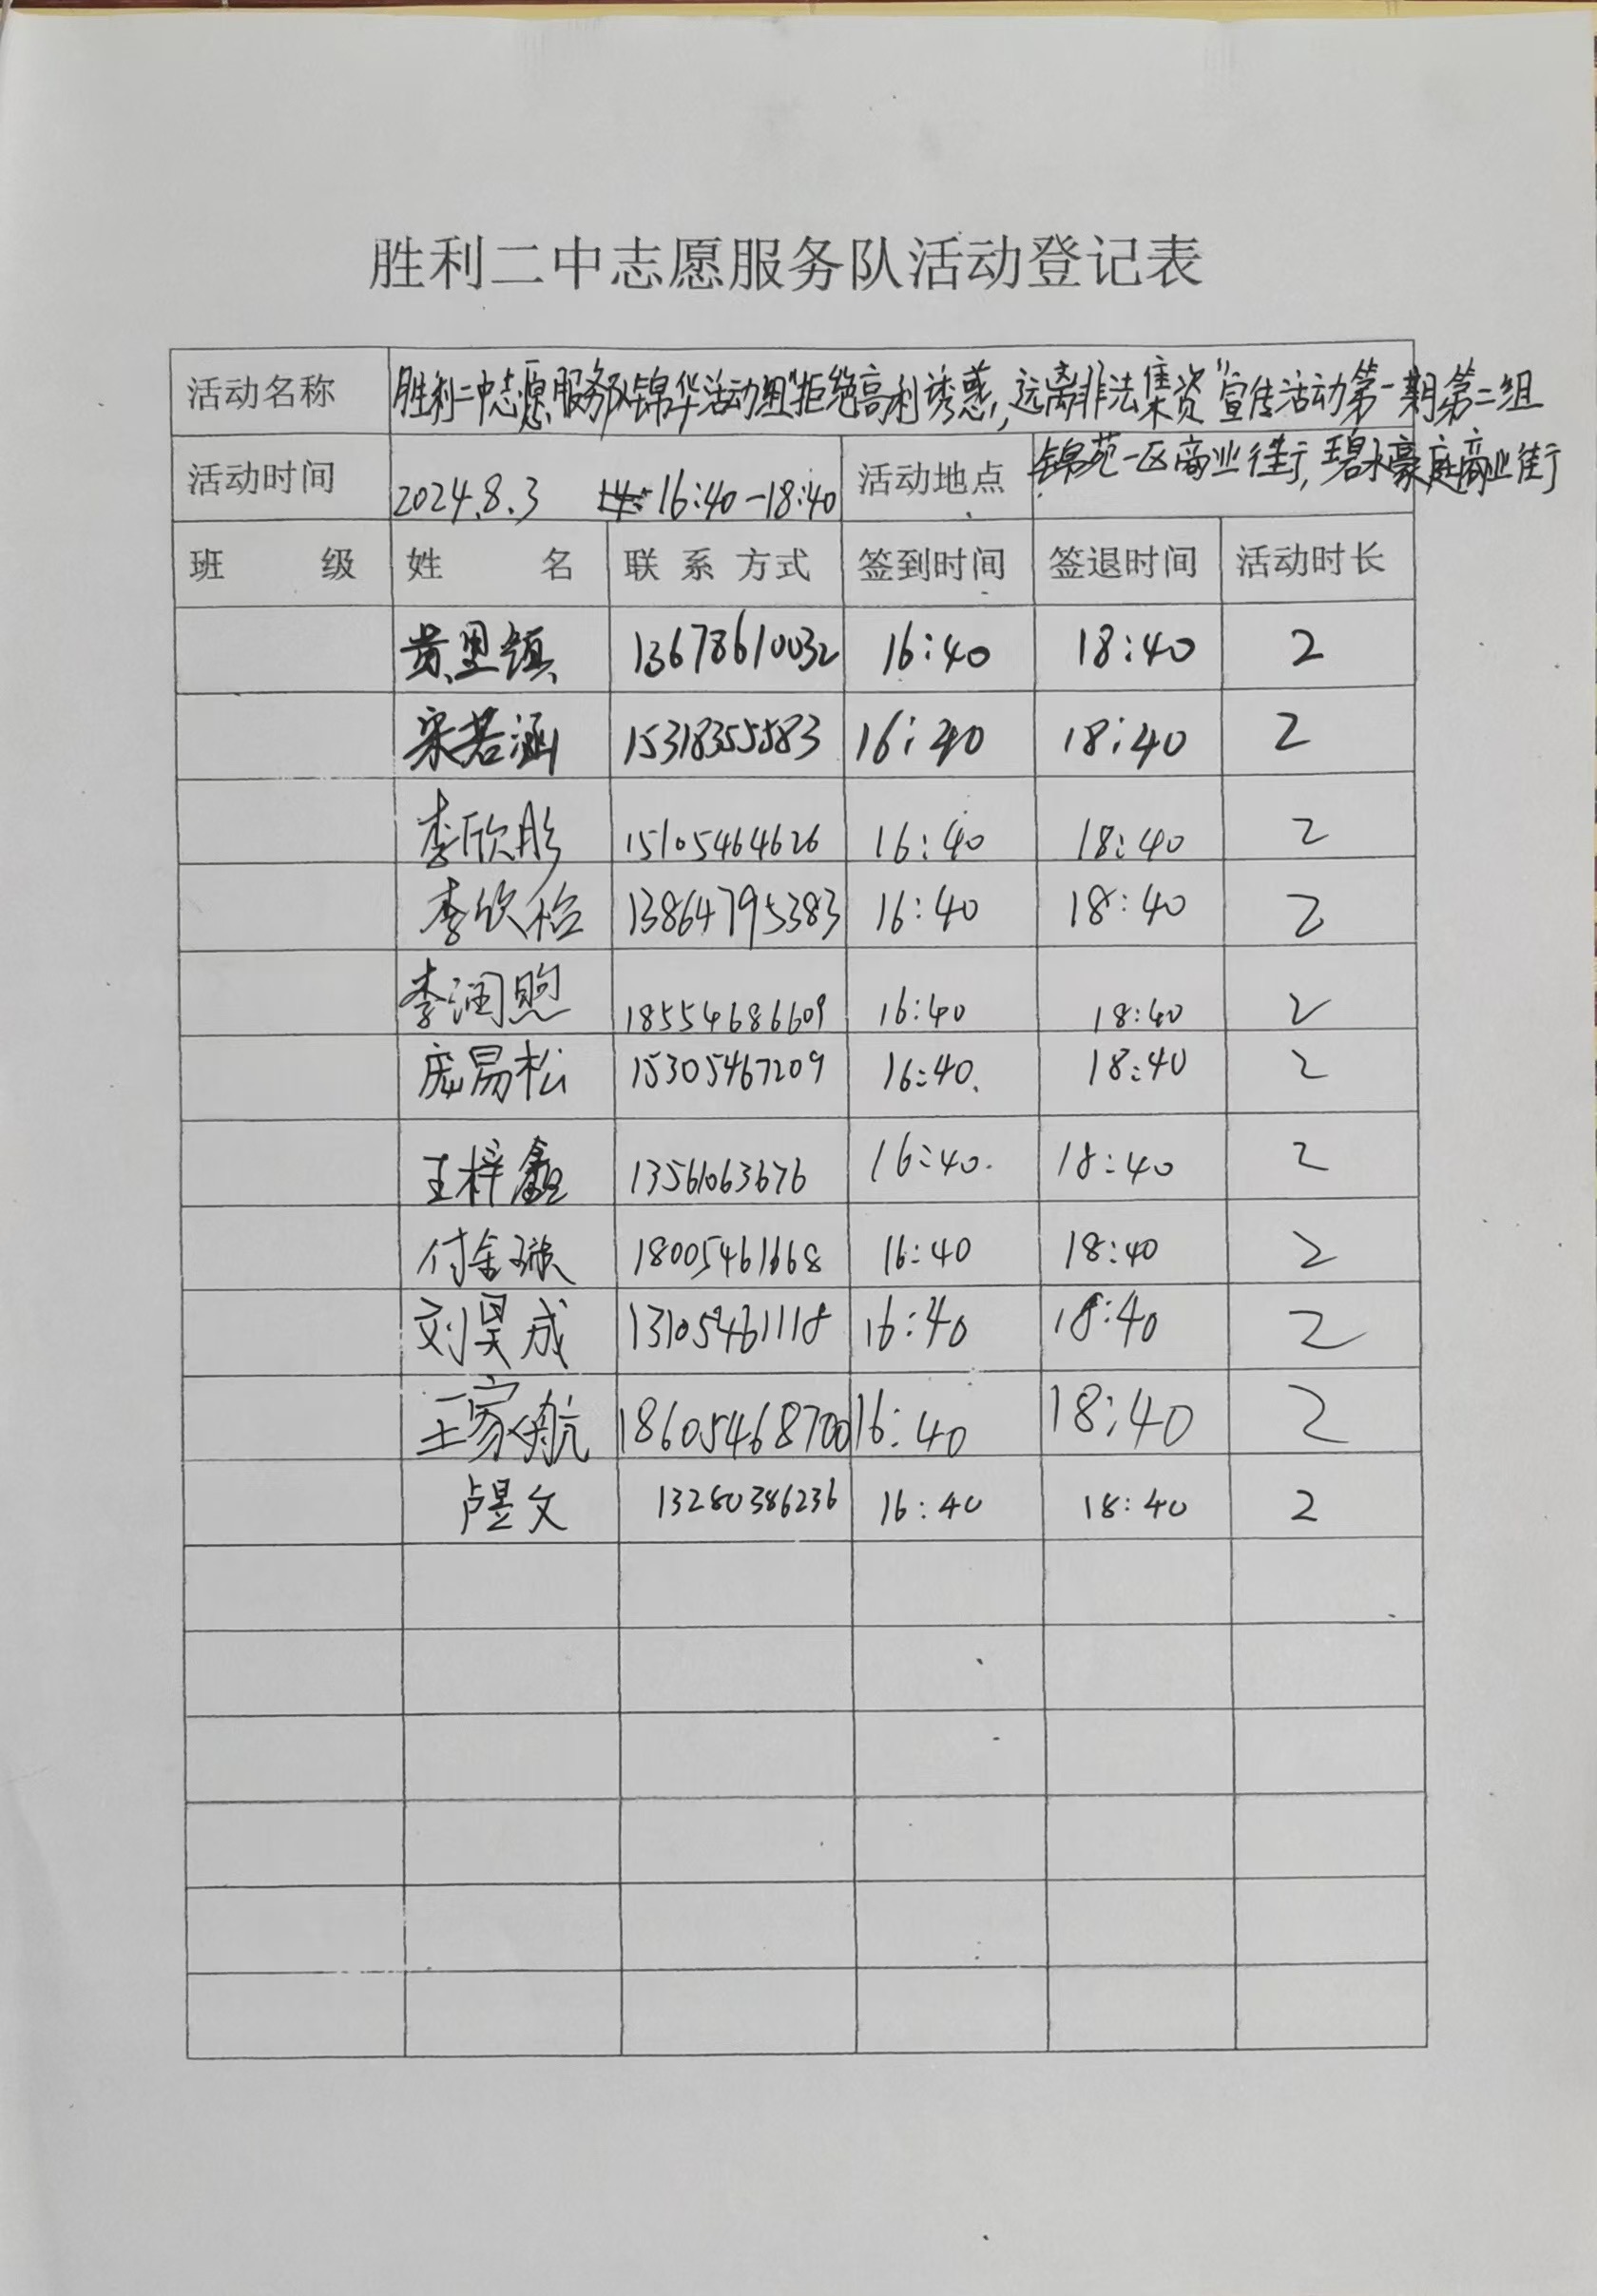 胜利二中志愿服务队活动登记表
活动名称 胜利二中志愿服务队锦华活动组"拒绝高利诱惑,远离非法集资"宣传活动第一期第二组
活动时间 2024.8.3 16:40-18:40 活动地点 锦苑一区商业街,碧水豪庭商业街
班 级 姓 名 联系方式 签到时间 签退时间 活动时长
黄里镇 13678610032 16:40 18:40 2
宋若涵 15318355583 16:40 18:40 2
李欣彤 15105464626 16:40 18:40 2
李欣怡 13864795383 16:40 18:40 2
李润煦 18554686609 16:40 18:40 2
庞易松 15305467209 16:40. 18:40 2
王梓鑫 13561063676 16:40. 18:40 2
付金璇 18005461668 16:40 18:40 2
刘昊成 13105461118 16:40 18:40 2
王家航 18605468700 16:40 18:40 2
卢昱文 13280386236 16:40 18:40 2